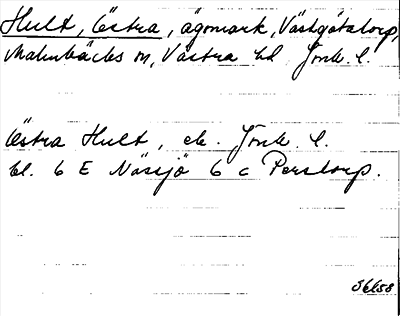 Hult, Östra, ägomark, Västgötatorp,
Malmbäcks sn, Västra hd Jönk. l.
Östra Hult, ek. Jönk. l.
bl. 6 E Nässjö 6 c Perstorp.